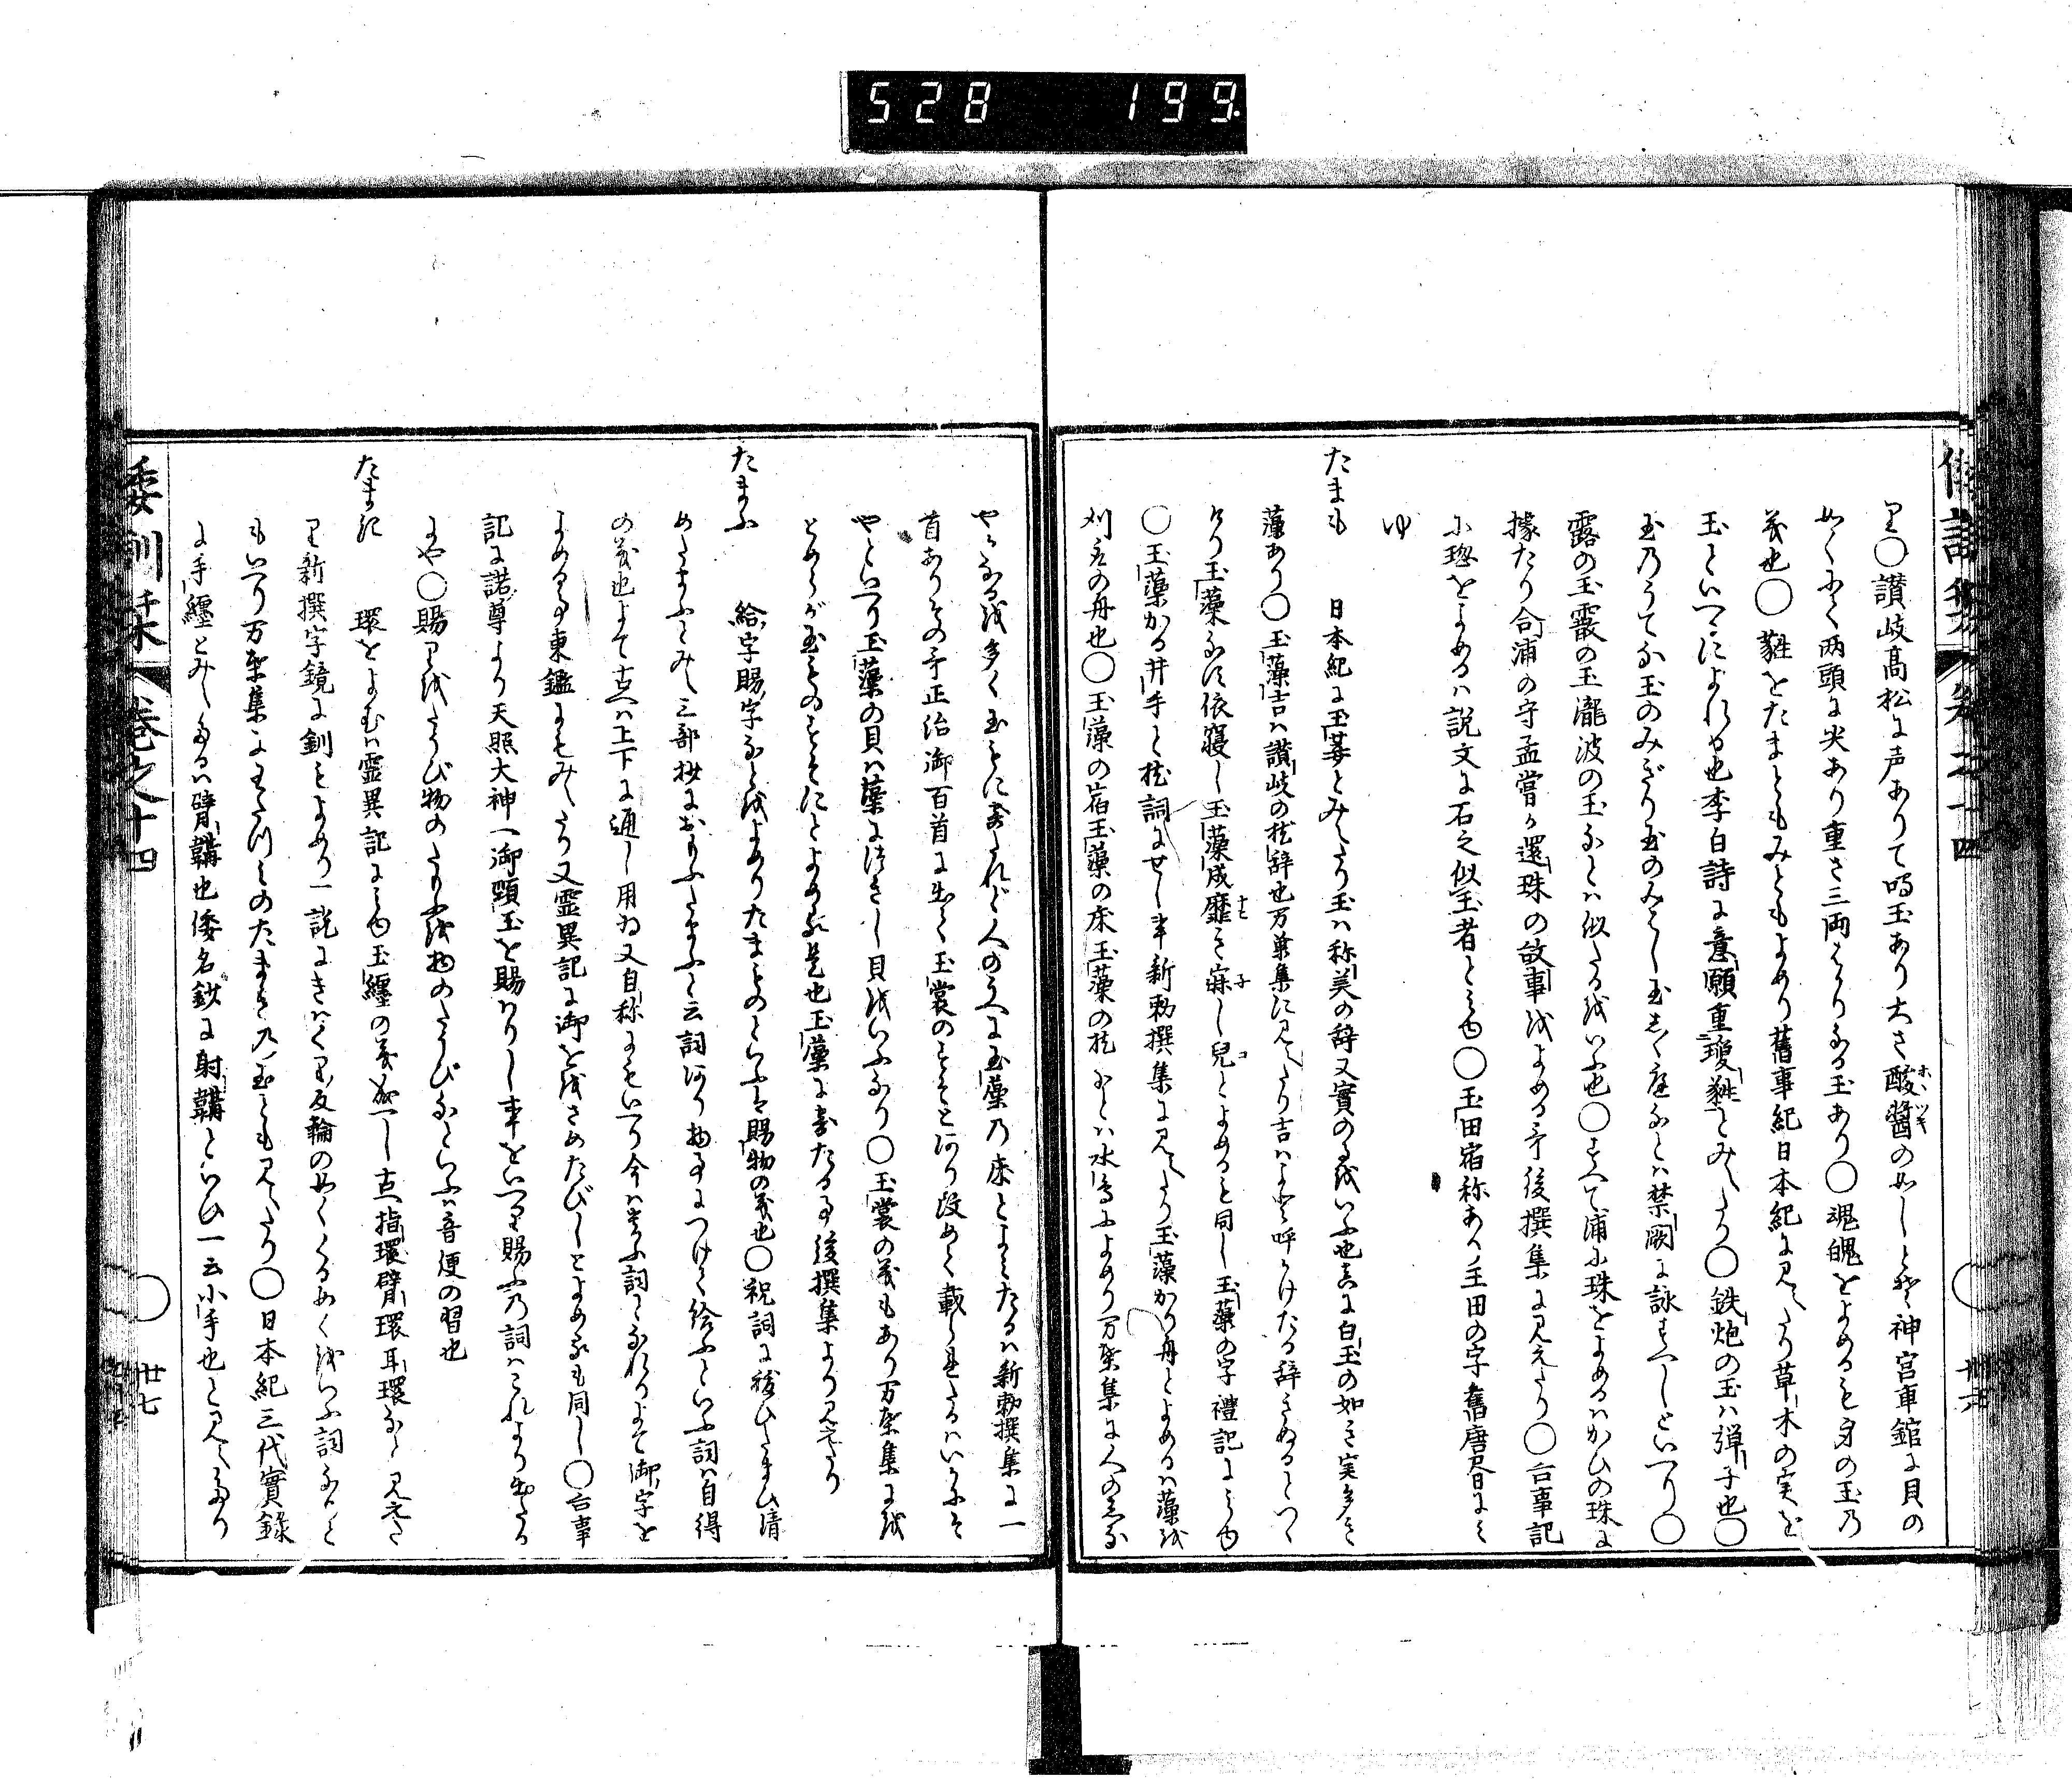 528 199.
り○讃岐高松に声ありて鳴玉あり大さ酸醤の如しとぞ神宮車舘に貝の
如くにて両頭に尖あり重さ三両はかりなる玉あり○魂魄をよめるも身の玉乃
義也○甤をたまともみともよめり舊事紀日本紀に見えたり草木の実を
玉といへるによれる也李白詩に意願重瓊甤とみえたり○鉄炮の玉ハ弾子也○
玉乃うてな玉のみぎり玉のみはし玉しく庭なとハ禁闕に詠すへしといへり○
露の玉霰の玉瀧波の玉なとハ似たるをいふ也○すへて浦に珠をよめるハかひの珠に
據たり合浦の守孟嘗か還珠の故事をよめる哥後撰集に見えたり○古事記
に璁をよめるハ説文に石之似玉者とみゆ○玉田宿称あり王田の字舊唐書にみ
ゆ
たまも 日本紀に玉莓とみえたり玉ハ称美の辞又實のるをいふ也真に白玉の如き実多き
藻あり○玉藻吉ハ讃岐の枕辞也万葉集に見えたり吉ハよと呼かけたる辞さぬるとつゝ
けり玉藻なす依寝し玉藻成靡き寐し兒とよめると同し玉藻の字禮記にみゆ
○玉藻かる井手と枕詞にせし事新勅撰集に見えたり玉藻かり舟とよめるハ藻を
刈る為の舟也○玉藻の宿玉藻の床玉藻の枕なとハ水鳥によめり万葉集に人のしな
やかなるを多く玉もに寄たれと人のうへに玉藻乃床とよみたるハ新勅撰集に一
首ありその哥正治御百首に出て玉裳のすそとあり改めて載らるゝハいかにそ
やといへり玉藻の貝ハ藻に付きし貝をいふなり○玉裳の義もあり万葉集にを
とめらが玉ものすそにとよめる是也玉藻に寄たる事後撰集より見えたり
たまふ 給字賜字なとをよめりたまものといふは賜物の義也○祝詞に祓ひたまひ清
めたまふとみえ三部抄におもふたまふと云詞あり物事につけて給ふといふ詞ハ自得
の義也よて古へハ上下に通し用ゐ又自称にもいへり今ハ崇ふ詞となれりよて御字を
よめる事東鑑にもみえたり又霊異記に御ををさめたびしとよめるも同し○古事
記に諾尊より天照大神へ御頸玉を賜ハりし事をいへり賜ふの詞ハこれより出たる
にや○賜りをたうび物のたまふを物のたうびなといふハ音便の習也
たまき 環をよむハ霊異記にみゆ玉纏の義なるへし古へ指環臂環耳環なと見えた
り新撰字鏡に釧もよめり一説にきハくり反輪の如くくるめくをいふ詞なりと
もいへり万葉集にわたつみのたまきの玉とも見えたり○日本紀三代實録
に手纏とみえたるハ臂韝也倭名鈔に射韝といひ一云小手也と見えたり
倭訓栞 巻之十四 廿七